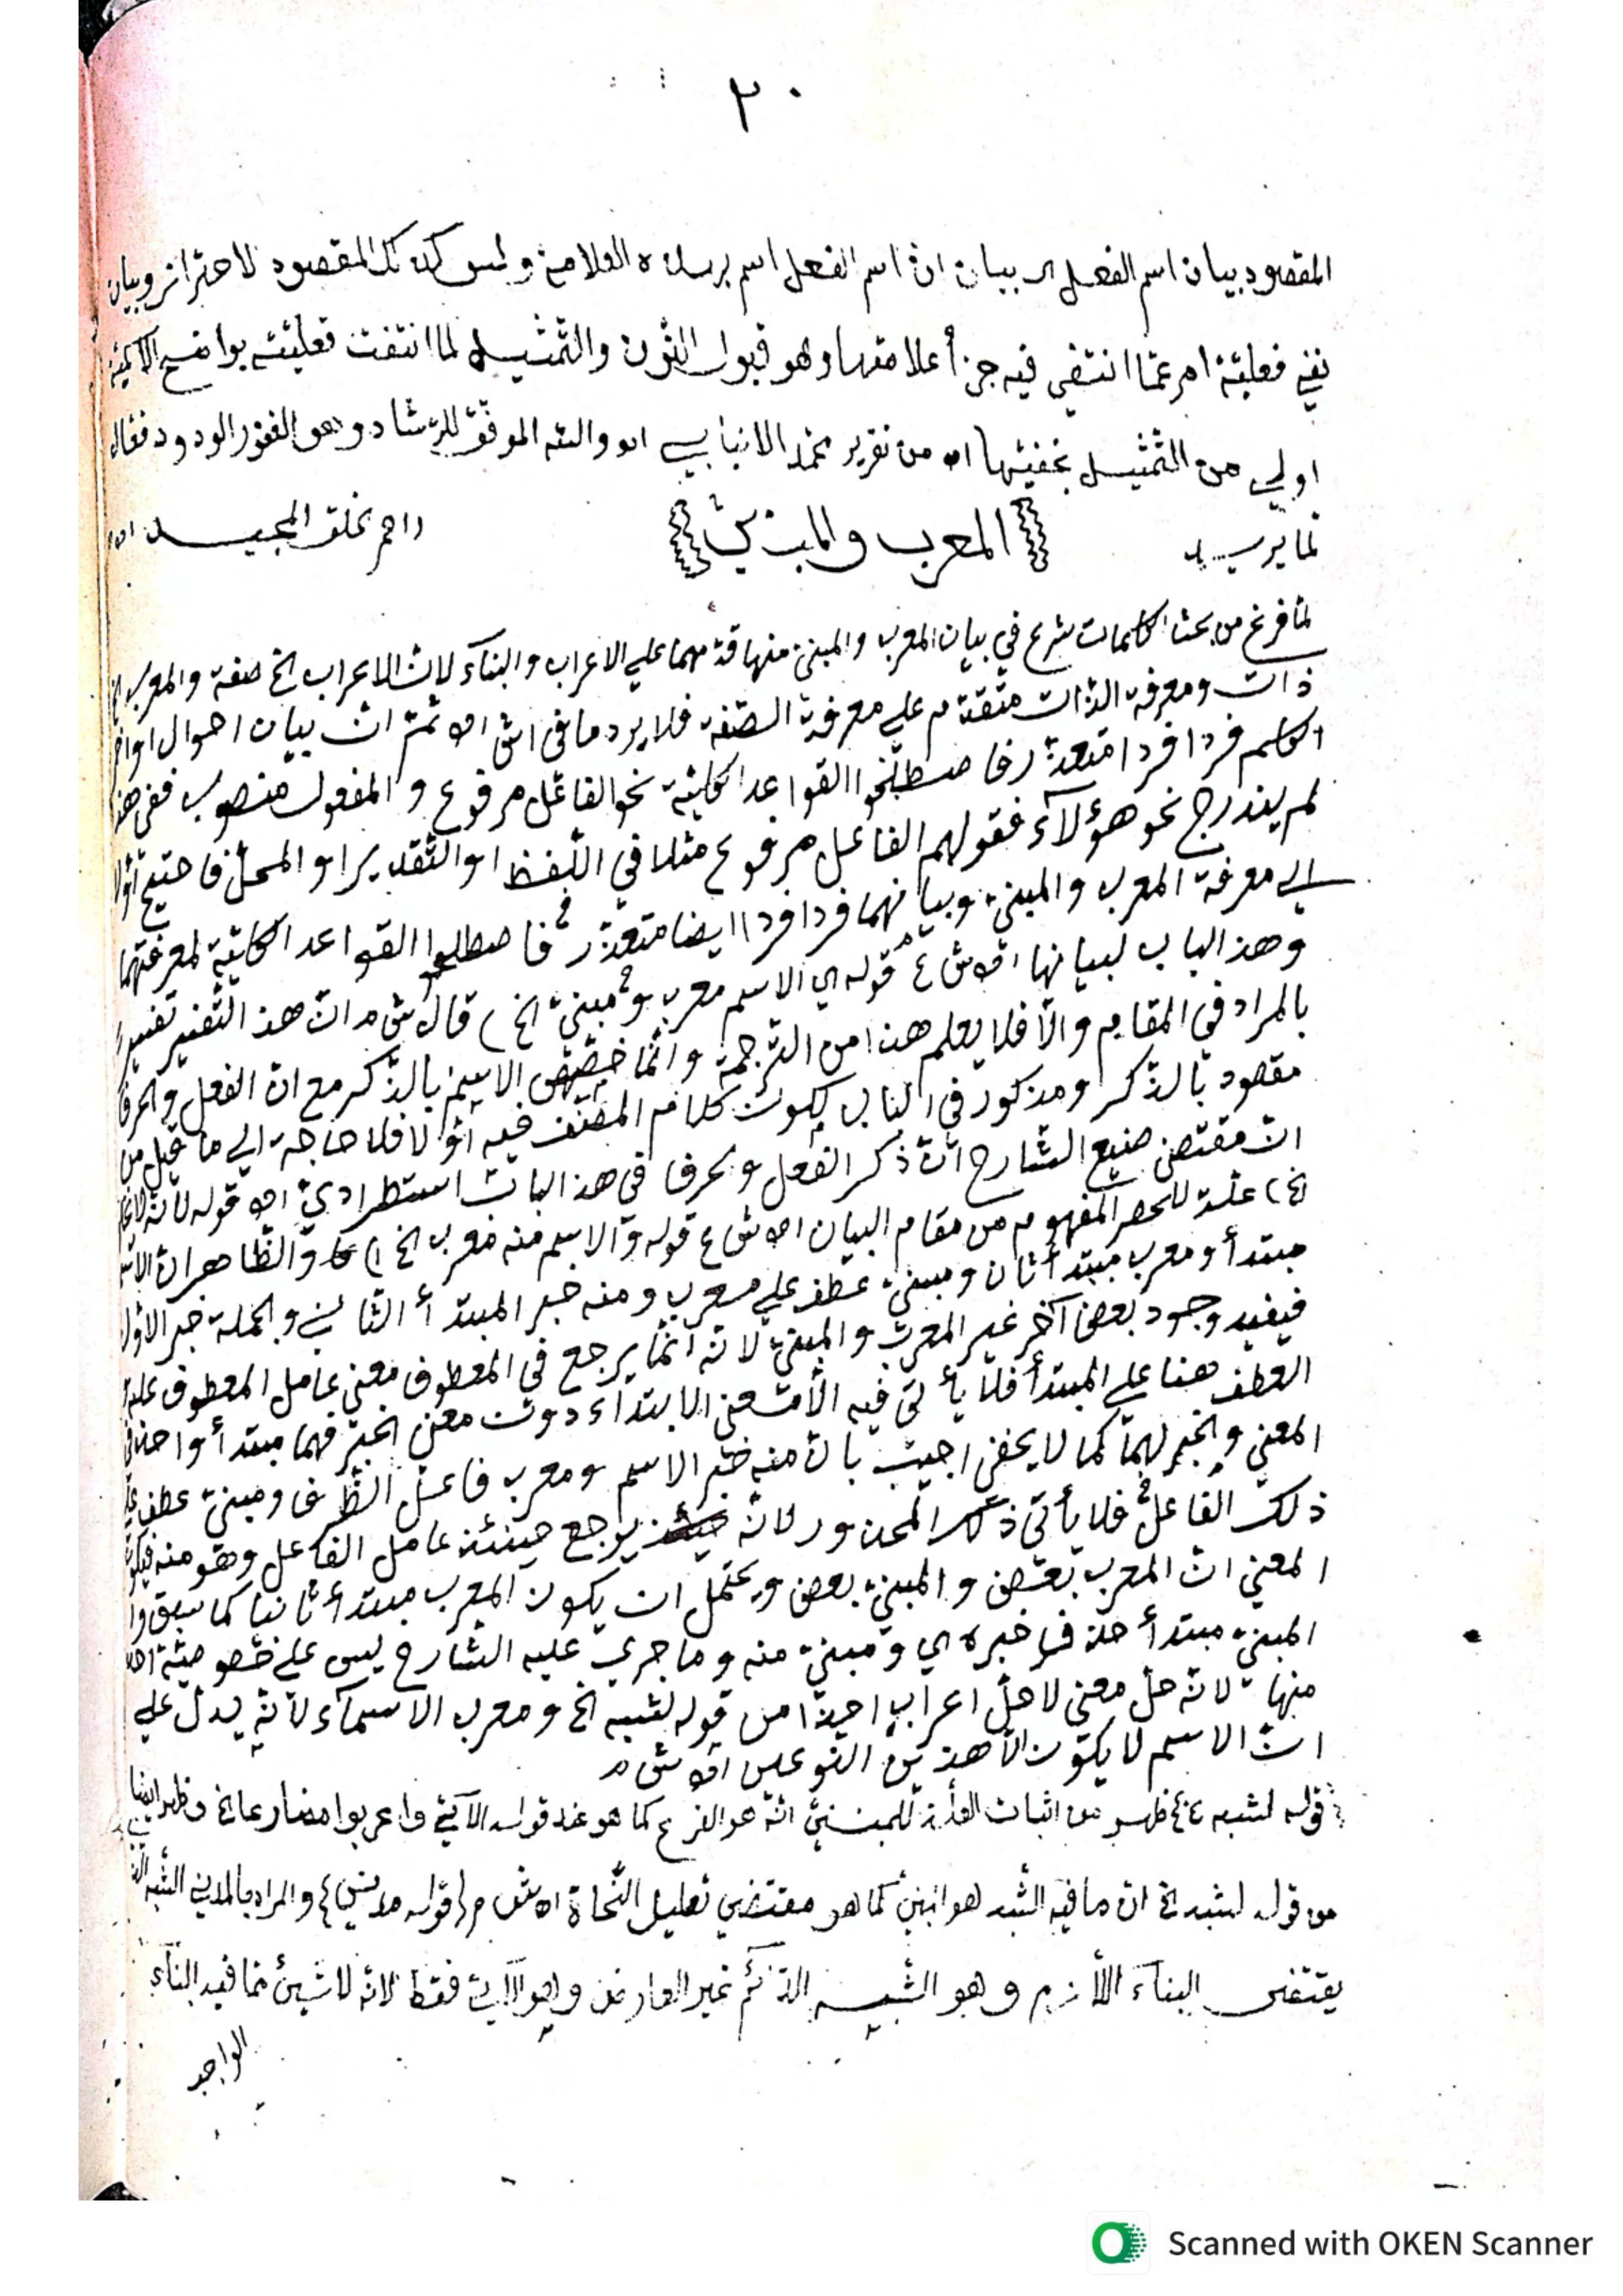 ٢٠
المقصود بيان اسم الفعل لا بيان ان اسم الفعل اسم العلامة وليس كذلك المقصود لاحتراز وبيان
نفي فعلية امر عما انتفى فيه جزأ علامتها وهو قبول النون والتمثيل لما انتفت فعليته بواضح الاسمية
اولي من التمثيل بخفيتها اه من تقرير محمد الانبابي اه والله الموفق للرشاد وهو الغفور الودود فعال
لما يريد المعرب والمبني
لما فرغ من بحث الكلمات شرع في بيان المعرب والمبني منها قدمهما علي الاعراب والبناء لان الاعراب الخ صفة والمعرب الخ
ذات ومعرفة الذات متقدم علي معرفة الصفة فلا يرد ما في اش اه ثم ان بيان احوال اواخر
الكلم فردا فردا متعذر فاصطلحوا القواعد الكلية نحو الفاعل مرفوع والمفعول منصوب ففي هذ
لم يندرج نحو هؤلاء فقولهم الفاعل مرفوع مثلا في اللفظ او التقدير او المحل فاحتيج اولا
الي معرفة المعرب والمبني وبيانهما فردا فردا ايضا متعذر فاصطلحوا القواعد الكلية لمعرفتهما
وهذ الباب لبيانها اه ش ع قوله اي الاسم معرب ومبني الخ) قال ش م ان هذ التفسير تفسير
بالمراد في المقام والا فلا يعلم هذا من الترجمة وانما خصص الاسم بالذكر مع ان الفعل والحرف
مقصود بالذكر ومذكور في الباب لكون كلام المصنف فيه اولا فلا حاجة الي ما قيل من
ان مقتضى صنيع الشارح ان ذكر الفعل والحرف في هذ الباب استطرادي اه قوله لانه
الخ) علة للحصر المفهوم من مقام البيان اه ش ع قوله والاسم منه معرب الخ) والظاهر ان الاسم
مبتدأ ومعرب مبتدأ ثان ومبني عطف علي معرب ومنه خبر المبتدأ الثاني والجملة خبر الاول
فيفيد وجود بعض آخر غير المعرب والمبني لانه انما يرجع في المعطوف معني عامل المعطوف عليه
العطف هنا علي المبتدأ فلا يأتي فيه الا معني الابتداء دون معني الخبر فهما مبتدأ واحد في
المعني والخبر لهما كما لا يخفى اجيب بان منه خبر الاسم ومعرب فاعل الظرف ومبني عطف علي
ذلك الفاعل فلا يأتي ذلك المحذور لانه يرجع حينئذ عامل الفاعل وهو منه فيكون
المعني ان المعرب بعض والمبني بعض ويحتمل ان يكون المعرب مبتدأ ثانيا كما سبق و
المبني مبتدأ حذف خبره اي ومبني منه وما جري عليه الشارح ليس علي خصوصية احد
منها لانه حل معني لا حل اعراب اخذا من قوله لشبه الخ ومعرب الاسماء لانه يدل علي
ان الاسم لا يكون الا هذين النوعين اه ش م
قوله لشبه من اثبات العلة للمبني انه هو الفرع كما هو عند قوله الآتي واعربوا مضارعا الخ وظهر ايضا
من قوله لشبه الخ ان ما فيه الشبه هو المبني كما هو مقتضي تعليل النحاة اه ش م (قوله مدني) والمراد بالمدني الشبه الذي
يقتضى البناء اللازم وهو الشبه الدائم غير العارض وهو الآتي فقط لانه لا شيئ مما فيه البناء
الواجب
Scanned with OKEN Scanner